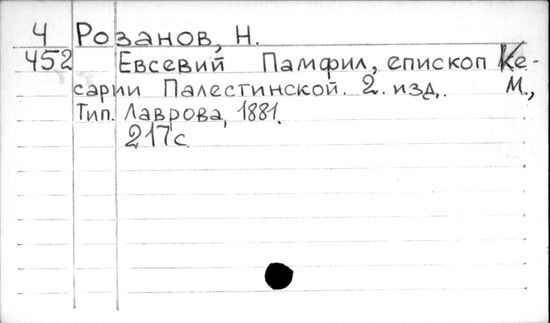 4 Розанов, Н.
452 Евсевий Памфил, епископ Ке-
сарии Палестинской. 2. изд,. М.,
Тип. Лаврова, 1881.
217с.